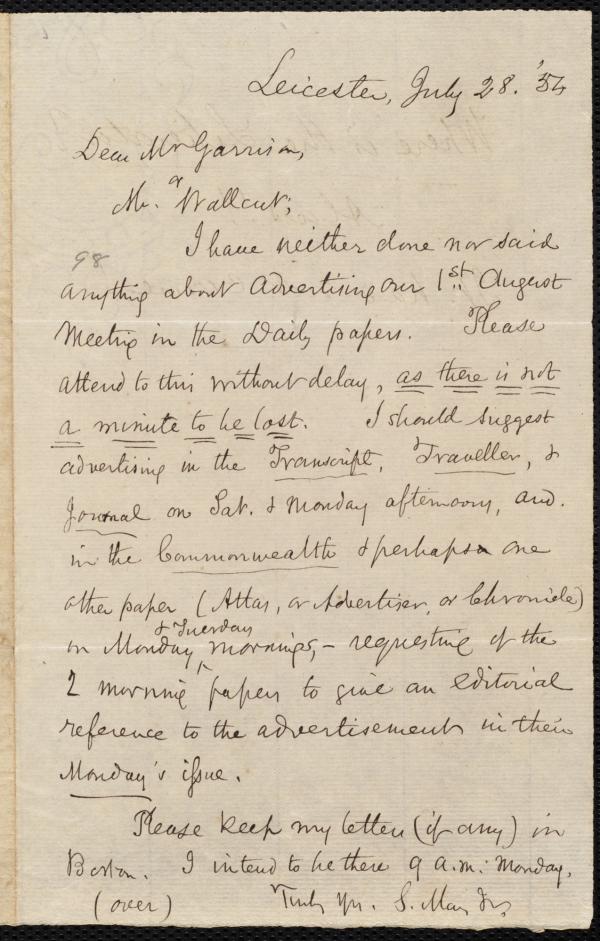 Leicester, July 28. '54
Dear Mr Garrison,
or
Mr. Wallcut;
I have neither done nor said
98
anything about Advertising our 1st August
Meeting in the Daily papers. Please
attend to this without delay, as there is not
a minute to be lost. I should suggest
advertising in the Transcript, Traveller, &
Journal on Sat. & Monday afternoons, and
in the Commonwealth & perhaps one
other paper (Atlas, or Advertiser, or Chronicle)
& Tuesday
on Monday mornings, – requesting of the
2 morning papers to give an Editorial
reference to the advertisement in their
Monday's issue.
Please keep my letters (if any) in
Boston. I intend to be there 9 a.m. Monday.
(over) Truly yrs. S. May Jr.